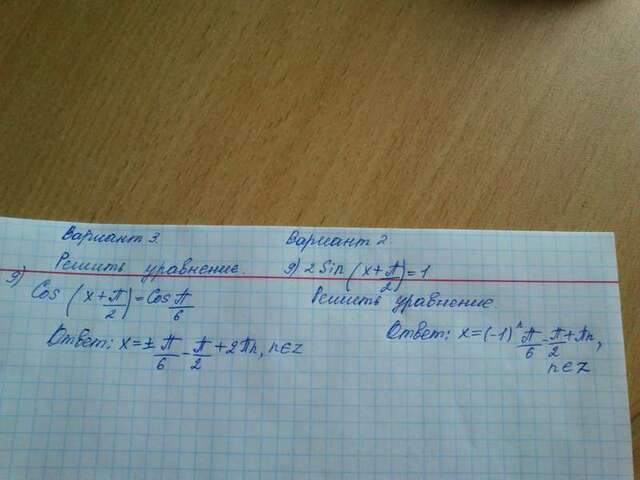 Вариант 3.
Решить уравнение.
9) Cos (x + π/2) = Cos π/6
Ответ: x = ± π/6 - π/2 + 2πn, n∈z
Вариант 2.
9) 2 Sin (x + π/2) = 1
Решить уравнение.
Ответ: x = (-1)^n π/6 - π/2 + πn,
n∈z